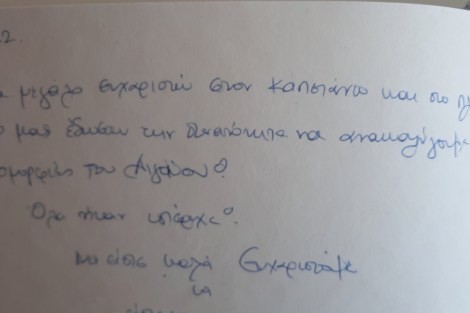 2.
μεγάλο ευχαριστώ στον καπετάνιο και στο
μας έδωσαν την δυνατότητα να ανακαλύψουμε
ομορφιές του Αιγαίου!
Όλα ήταν υπέροχα!
Να είστε καλά Ευχαριστούμε